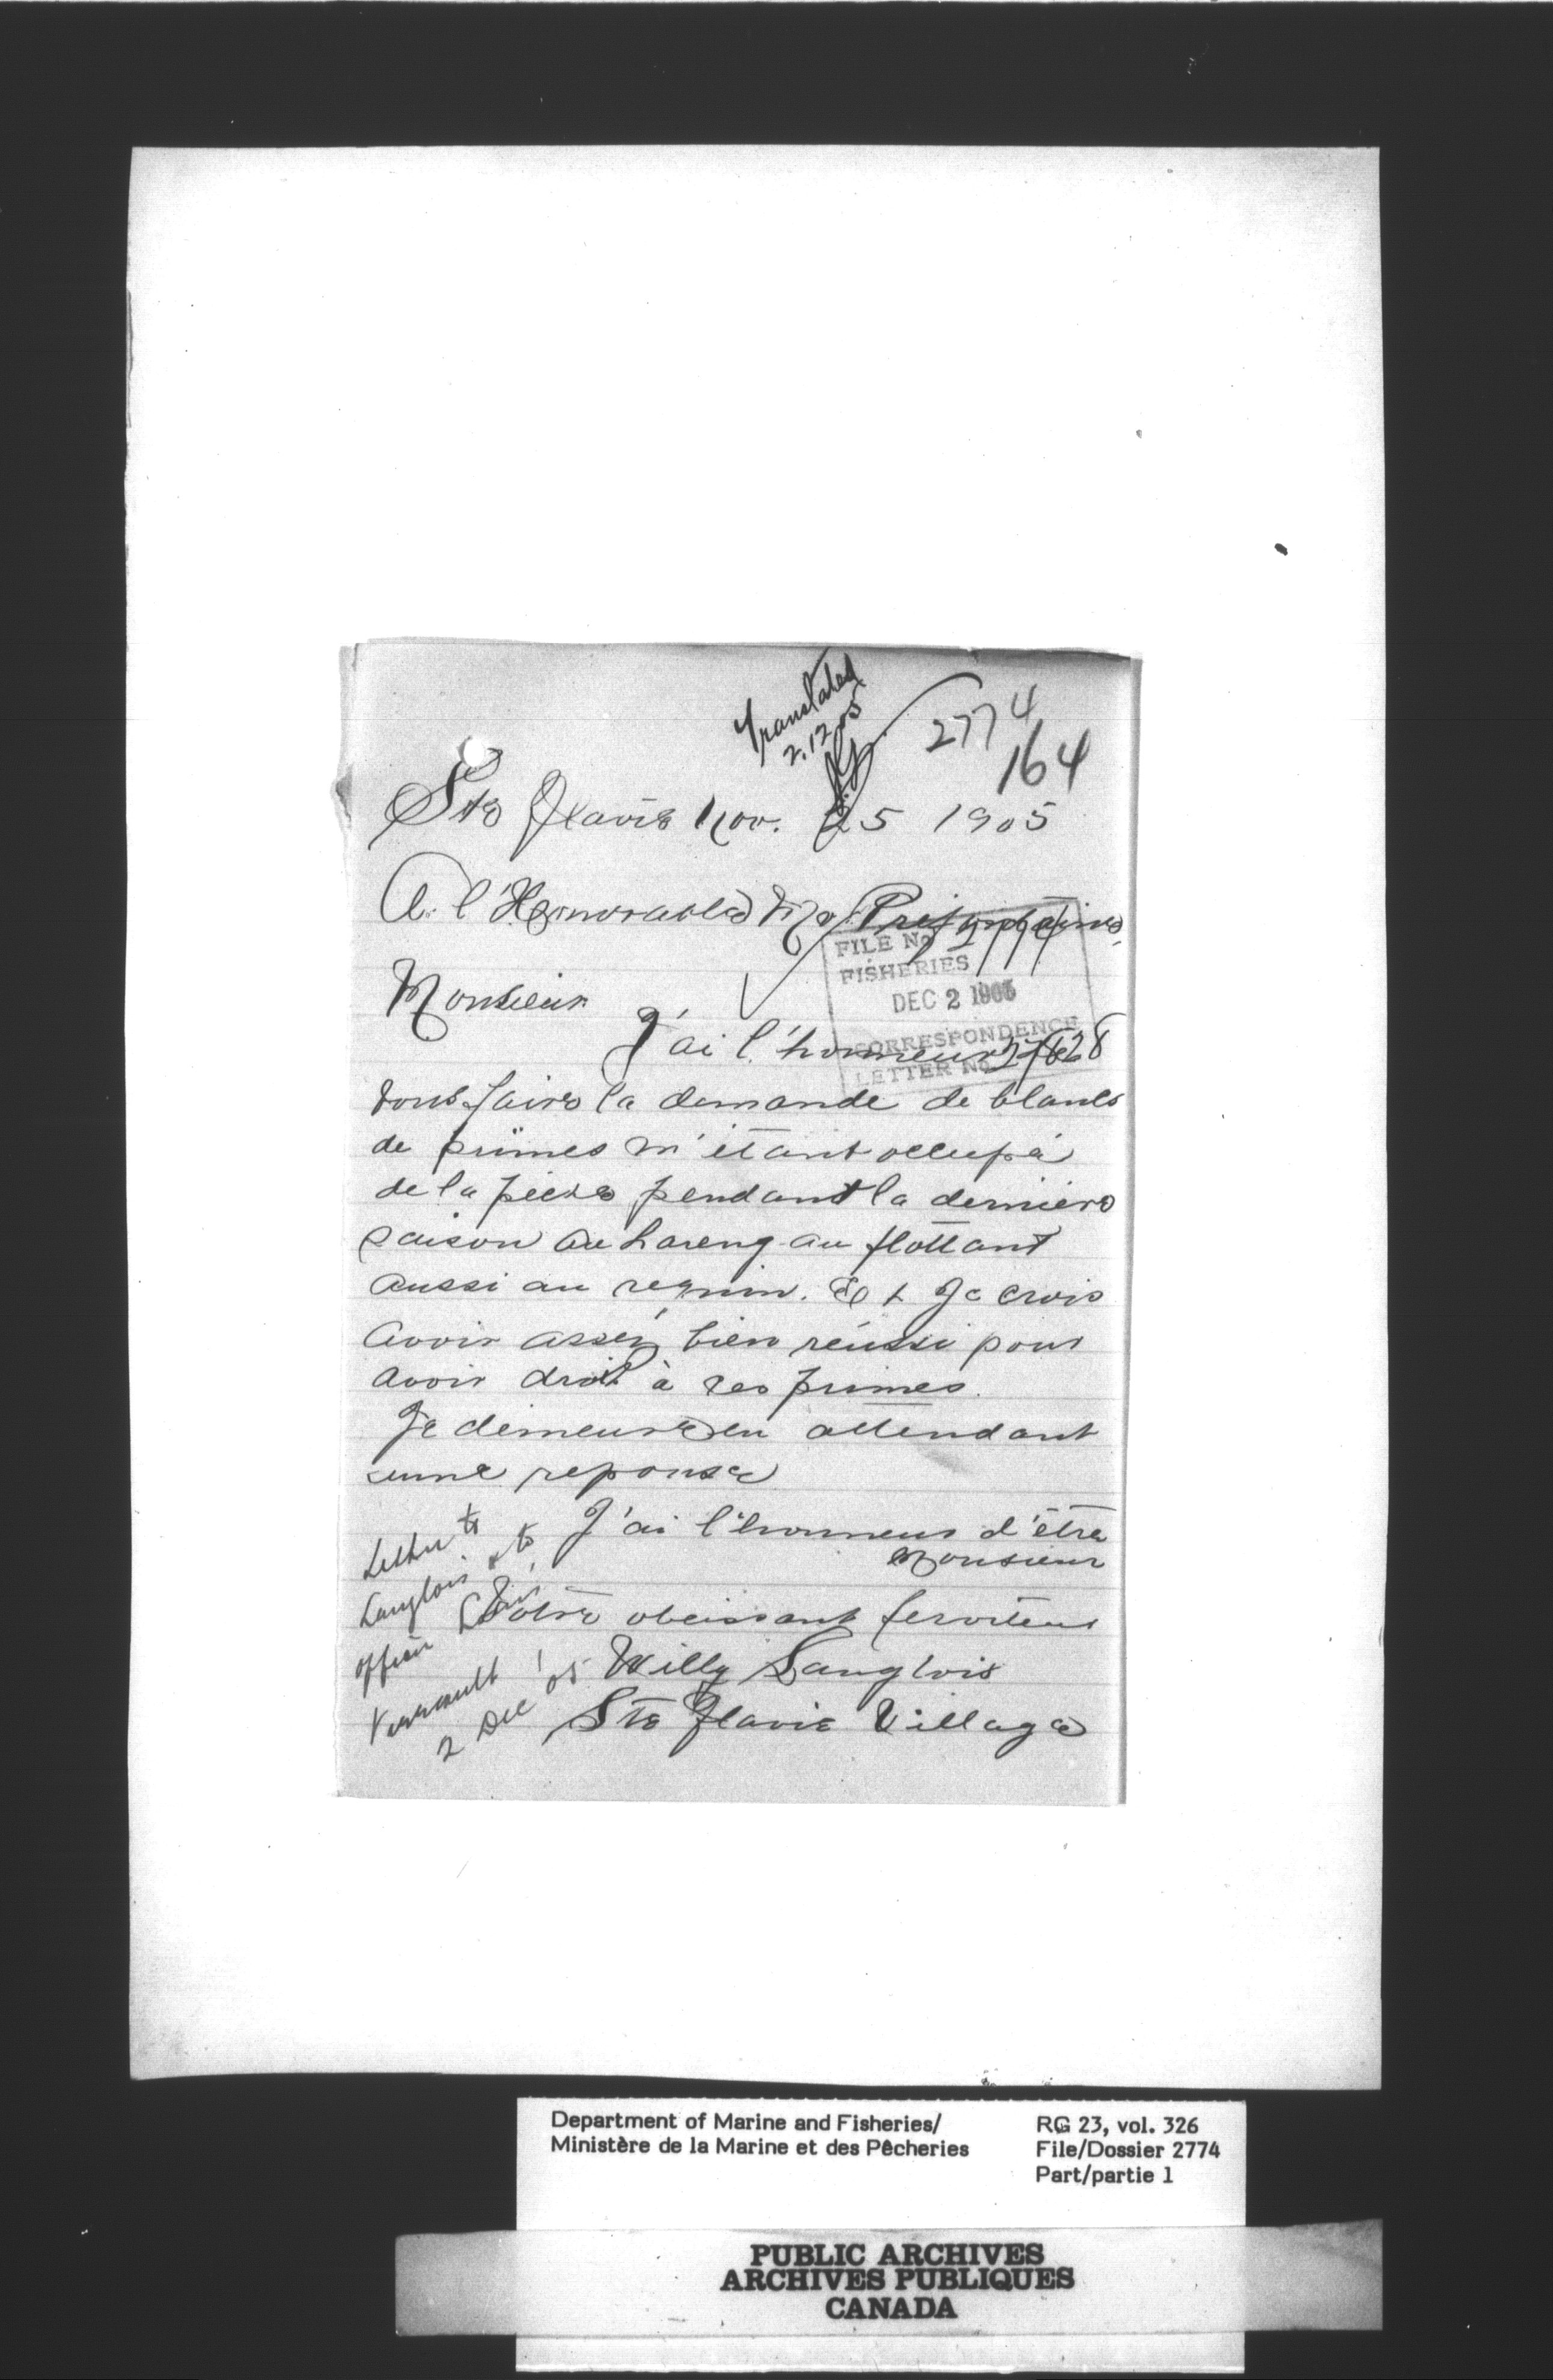 Translated
2.12.05
2774
164
Ste Flavie Nov. 25 1905
A l'Honorable Mr Prefontaine
FILE No 2774
FISHERIES
DEC 2 1905
CORRESPONDENCE
LETTER No
Monsieur
J'ai l'honneur de
vous faire la demande de blancs
de primes m'étant occupé
de la pêche pendant la dernière
saison au hareng au flottant
aussi au requin. Et Je crois
avoir assez bien réussi pour
avoir droit à ces primes.
Je demeure en attendant
une reponse
J'ai l'honneur d'être
Monsieur
Votre obeissant serviteur
Willy Langlois
Ste Flavie Village
Letter to
Langlois & to
Officer
2 Dec '05
Department of Marine and Fisheries/
Ministère de la Marine et des Pêcheries
RG 23, vol. 326
File/Dossier 2774
Part/partie 1
PUBLIC ARCHIVES
ARCHIVES PUBLIQUES
CANADA